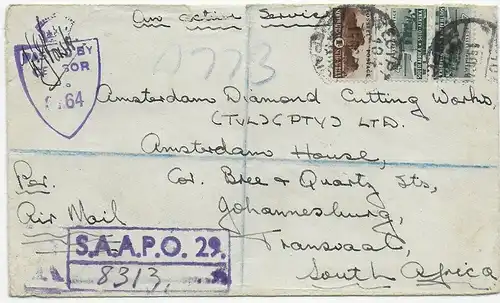 On active Service
PASSED BY
CENSOR
64
773
Amsterdam Diamond Cutting Works
(TVL) (PTY) LTD.
Amsterdam House,
Cor. Bree & Quartz Sts,
Johannesburg,
Transvaal,
South Africa
Per
Air Mail
S.A.A.P.O. 29.
8313